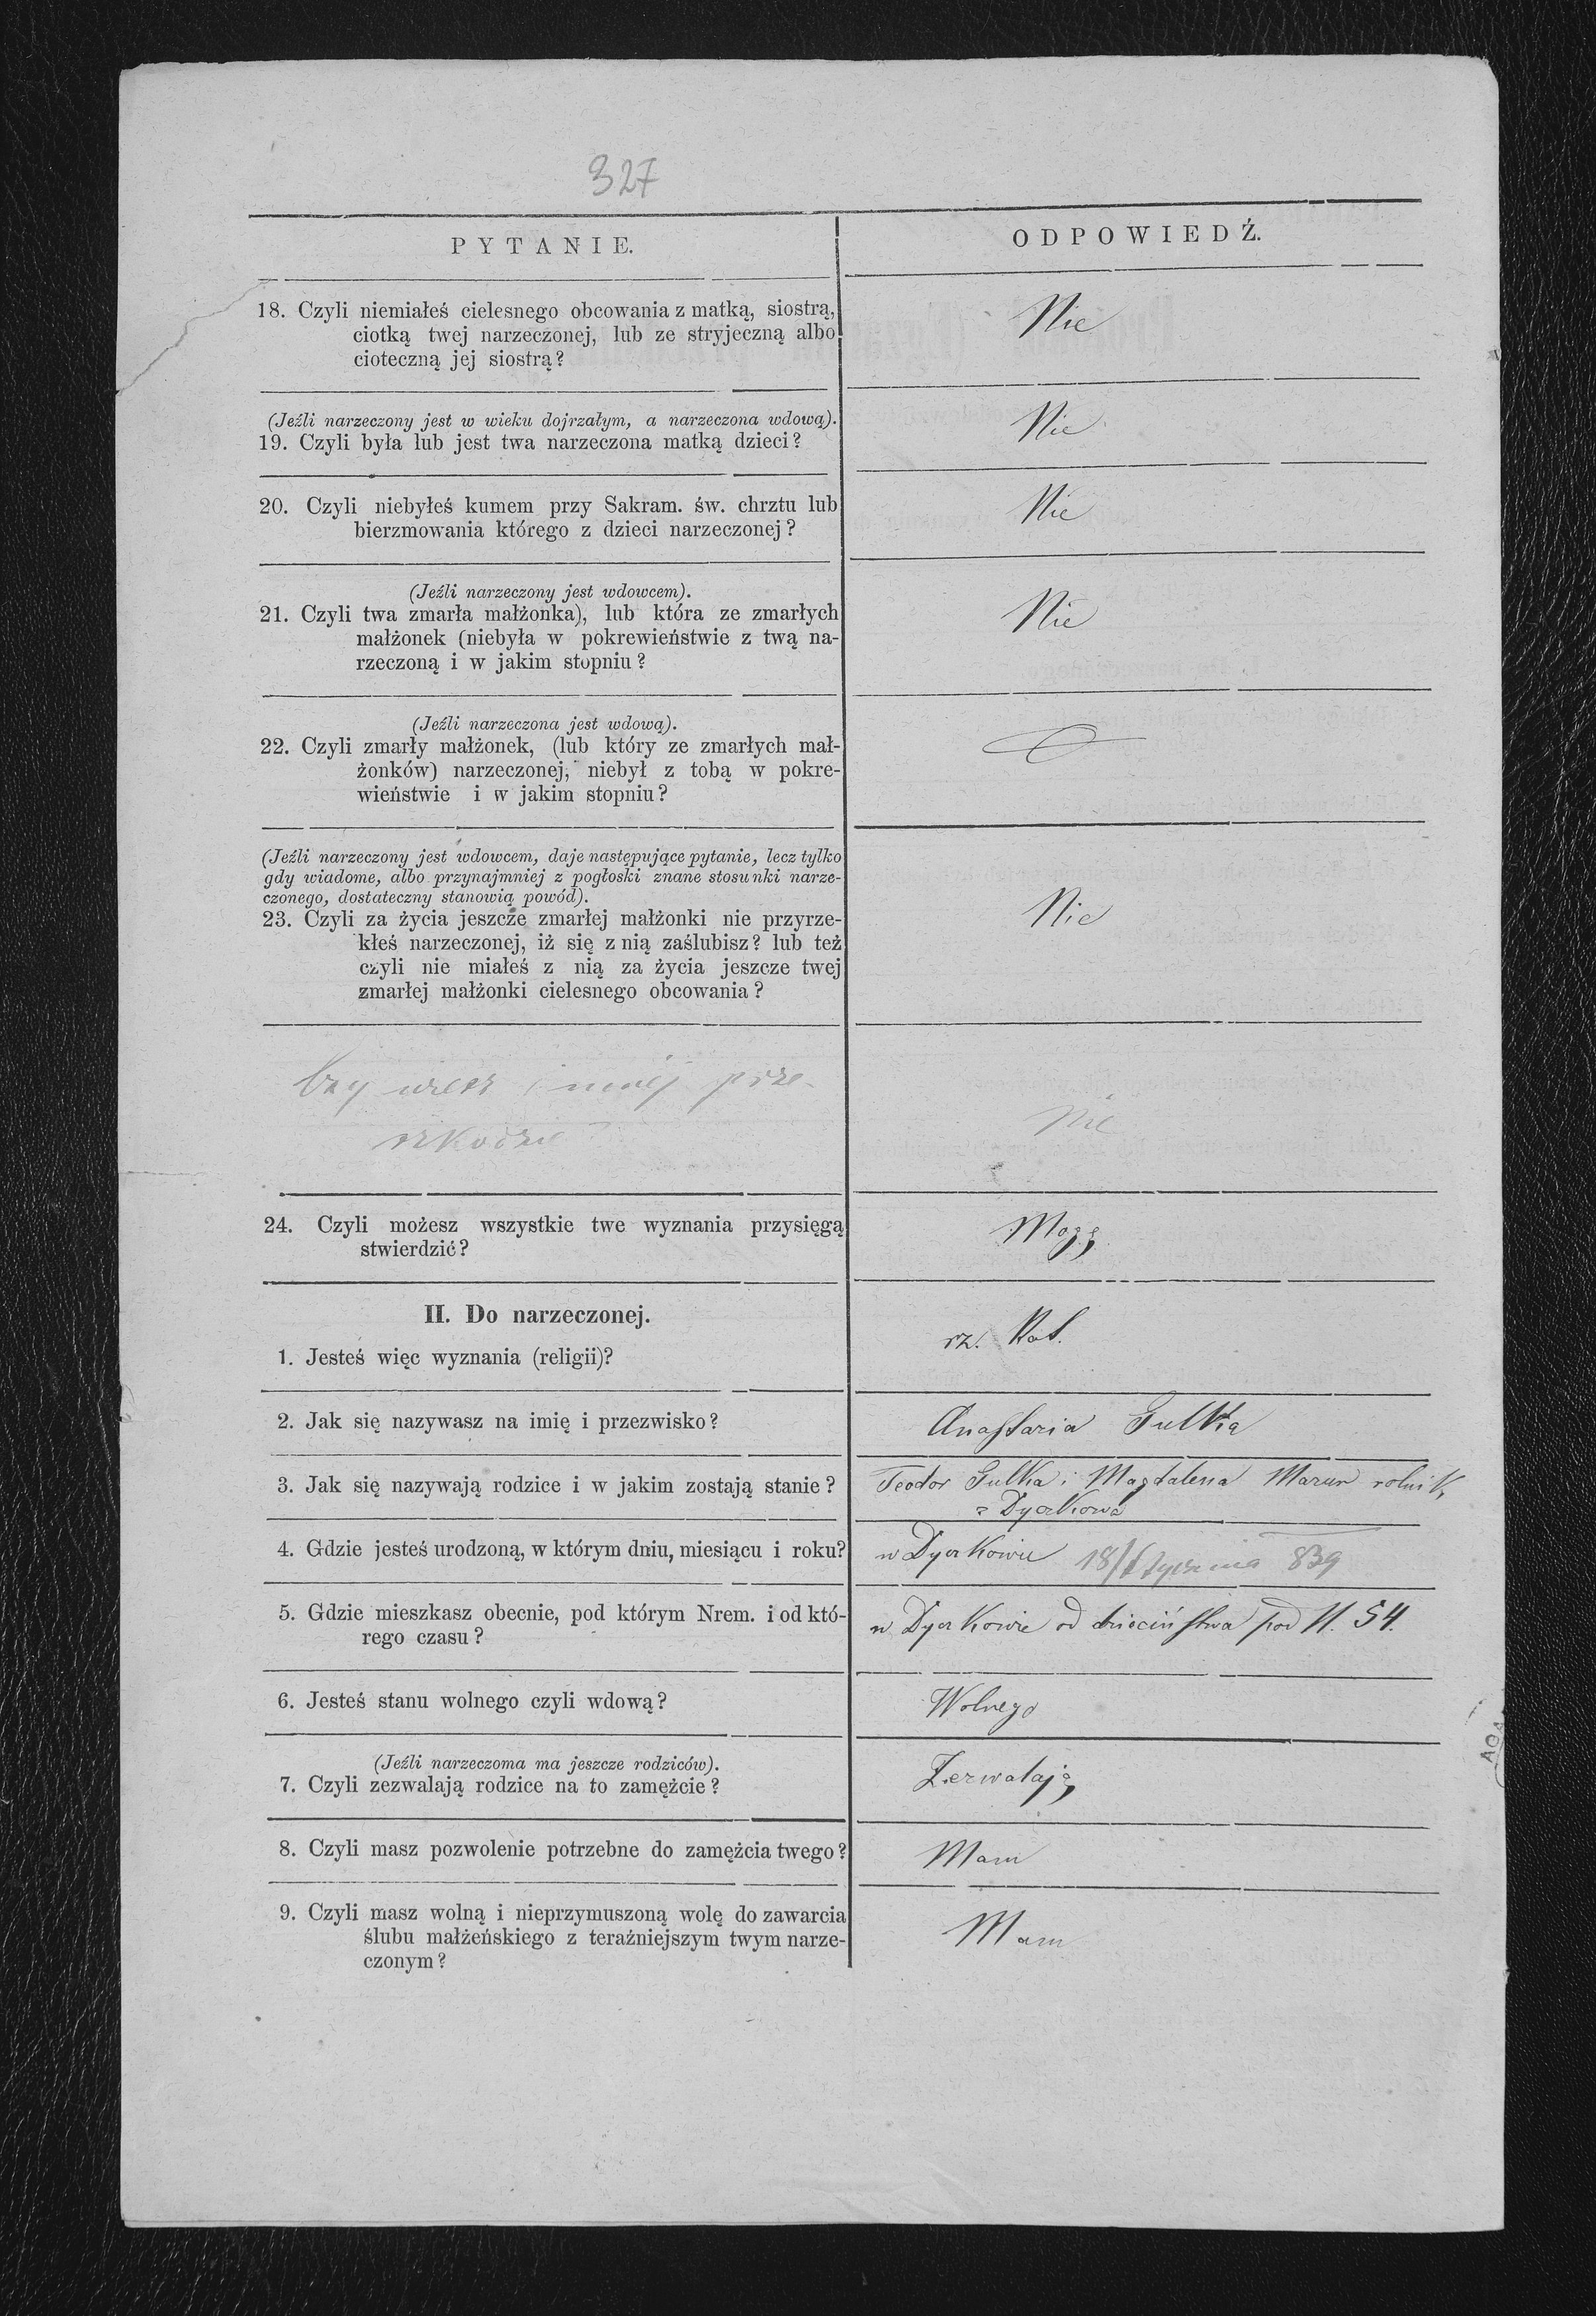 327
PYTANIE.
ODPOWIEDŹ.
18. Czyli niemiałeś cielesnego obcowania z matką, siostrą,
ciotką twej narzeczonej, lub ze stryjeczną albo
cioteczną jej siostrą?
Nie
(Jeźli narzeczony jest w wieku dojrzałym, a narzeczona wdową).
19. Czyli była lub jest twa narzeczona matką dzieci?
Nie
20. Czyli niebyłeś kumem przy Sakram. św. chrztu lub
bierzmowania którego z dzieci narzeczonej?
Nie
(Jeźli narzeczony jest wdowcem).
21. Czyli twa zmarła małżonka), lub która ze zmarłych
małżonek (niebyła w pokrewieństwie z twą na-
rzeczoną i w jakim stopniu?
Nie
(Jeźli narzeczona jest wdową).
22. Czyli zmarły małżonek, (lub który ze zmarłych mał-
żonków) narzeczonej, niebył z tobą w pokre-
wieństwie i w jakim stopniu?
(Jeźli narzeczony jest wdowcem, daje następujące pytanie, lecz tylko
gdy wiadome, albo przynajmniej z pogłoski znane stosunki narze-
czonego, dostateczny stanowią powód).
23. Czyli za życia jeszcze zmarłej małżonki nie przyrze-
kłeś narzeczonej, iż się z nią zaślubisz? lub też
czyli nie miałeś z nią za życia jeszcze twej
zmarłej małżonki cielesnego obcowania?
Nie
Czy wiesz i innéj prze-
szkodzie
Nie
24. Czyli możesz wszystkie twe wyznania przysięgą
stwierdzić?
Mogę
II. Do narzeczonej.
1. Jesteś więc wyznania (religii)?
rz. Kat.
2. Jak się nazywasz na imię i przezwisko?
Anastazia Gulka
3. Jak się nazywają rodzice i w jakim zostają stanie?
Teodor Gulka i Magdalena Mazur rolnik
z Dyczkowa
4. Gdzie jesteś urodzoną, w którym dniu, miesiącu i roku?
w Dyczkowie 18/Stycznia 839
5. Gdzie mieszkasz obecnie, pod którym Nrem. i od któ-
rego czasu?
w Dyczkowie od dzieciństwa pod N. 54.
6. Jesteś stanu wolnego czyli wdową?
Wolnego
(Jeźli narzeczoma ma jeszcze rodziców).
7. Czyli zezwalają rodzice na to zamężcie?
Zezwalają
8. Czyli masz pozwolenie potrzebne do zamężcia twego?
Mam
9. Czyli masz wolną i nieprzymuszoną wolę do zawarcia
ślubu małżeńskiego z teraźniejszym twym narze-
czonym?
Mam